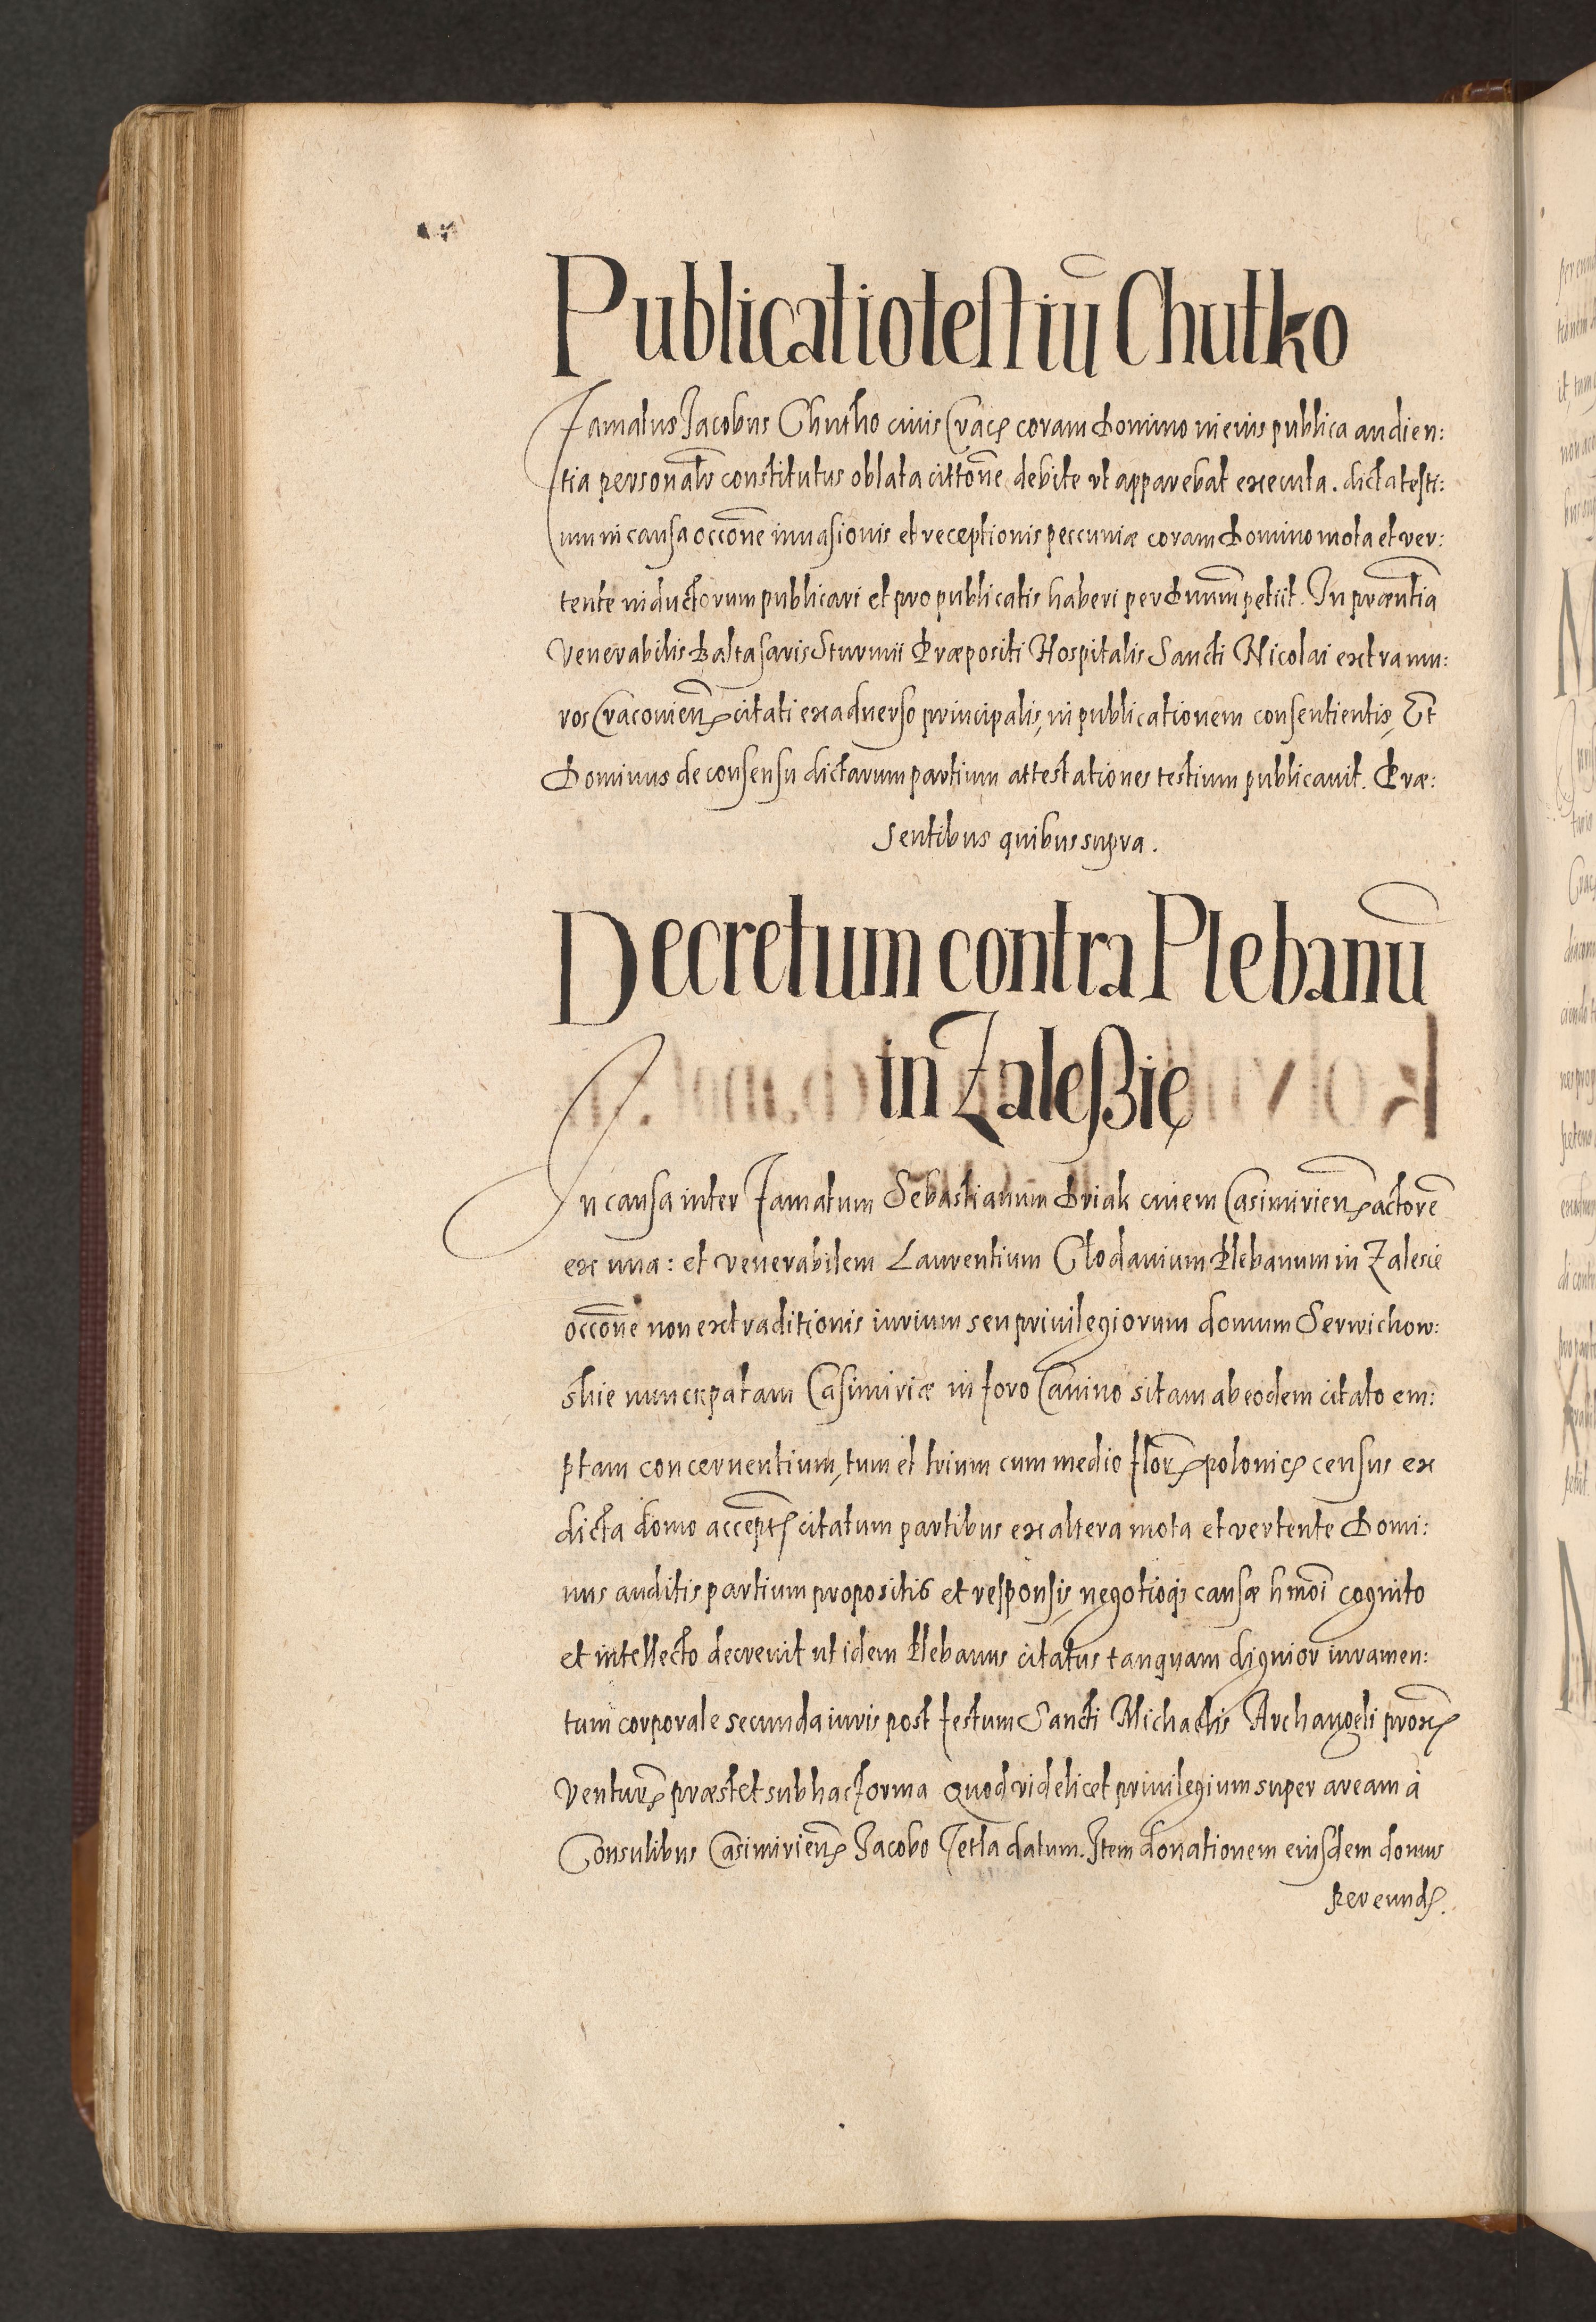 Publicatio testiū Chutko
Famatus Jacobus Chutko ciuis Crac̨ coram Domino in eius publica audien:
tia personalr̄ constitutus oblata cittōne debite vt apparebat executa. dicta testi:
um in causa occōne inuasionis et receptionis peccuniæ coram Domino mota et ver:
tente inductorum publicari et pro publicatis haberi per Dnum petiit. In præntia
Venerabilis Baltasaris Sturmii Præpositi Hospitalis Sancti Nicolai extra mu:
ros Cracouien̄ citati ex aduerso principalis, in publicationem consentientis, Et
Dominus de consensu dictarum partium attestationes testium publicauit. Præ:
sentibus quibus supra.
Decretum contra Plebanū
in Zaleßię
In causa inter Famatum Sebastianum Priak ciuem Casimirien̄ actorē
ex una: et venerabilem Laurentium Clodauium Plebanum in Zalesie
occōne non extraditionis iurium seu priuilegiorum domum Serwichow:
skie nuncupatam Casimiriæ in foro Canino sitam ab eodem citato em:
ptam concernentium, tum et trium cum medio flor̄ polonic̨ census ex
dicta domo accept̨ citatum partibus ex altera mota et vertente Domi:
nus auditis partium propositis et responsis, negotioq̨ causæ hmōi cognito
et intellecto decreuit ut idem Plebanus citatus tanquam dignior iuramen:
tum corporale secunda iuris post festum Sancti Michaelis Archangeli prox̄
Ventur̄ præstet sub hac forma Quod videlicet priuilegium super aream à
Consulibus Casimirien̄ Jacobo Tetla datum. Item donationem eiusdem domus
Reuerend̨.